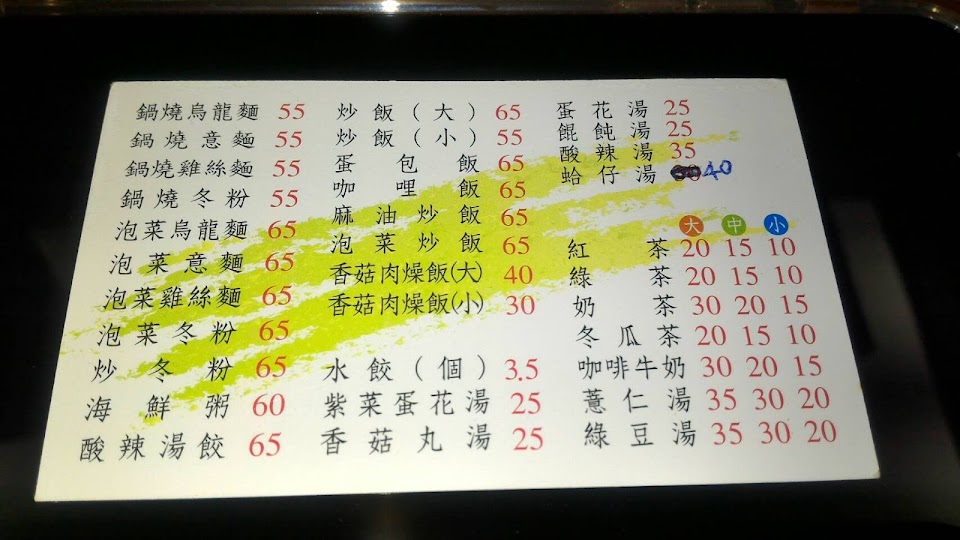 鍋燒烏龍麵 55
鍋燒意麵 55
鍋燒雞絲麵 55
鍋燒冬粉 55
泡菜烏龍麵 65
泡菜意麵 65
泡菜雞絲麵 65
泡菜冬粉 65
炒冬粉 65
海鮮粥 60
酸辣湯餃 65
炒飯(大) 65
炒飯(小) 55
蛋包飯 65
咖哩飯 65
麻油炒飯 65
泡菜炒飯 65
香菇肉燥飯(大) 40
香菇肉燥飯(小) 30
水餃(個) 3.5
紫菜蛋花湯 25
香菇丸湯 25
蛋花湯 25
餛飩湯 25
酸辣湯 35
蛤仔湯 40
大 中 小
紅茶 20 15 10
綠茶 20 15 10
奶茶 30 20 15
冬瓜茶 20 15 10
咖啡牛奶 30 20 15
薏仁湯 35 30 20
綠豆湯 35 30 20